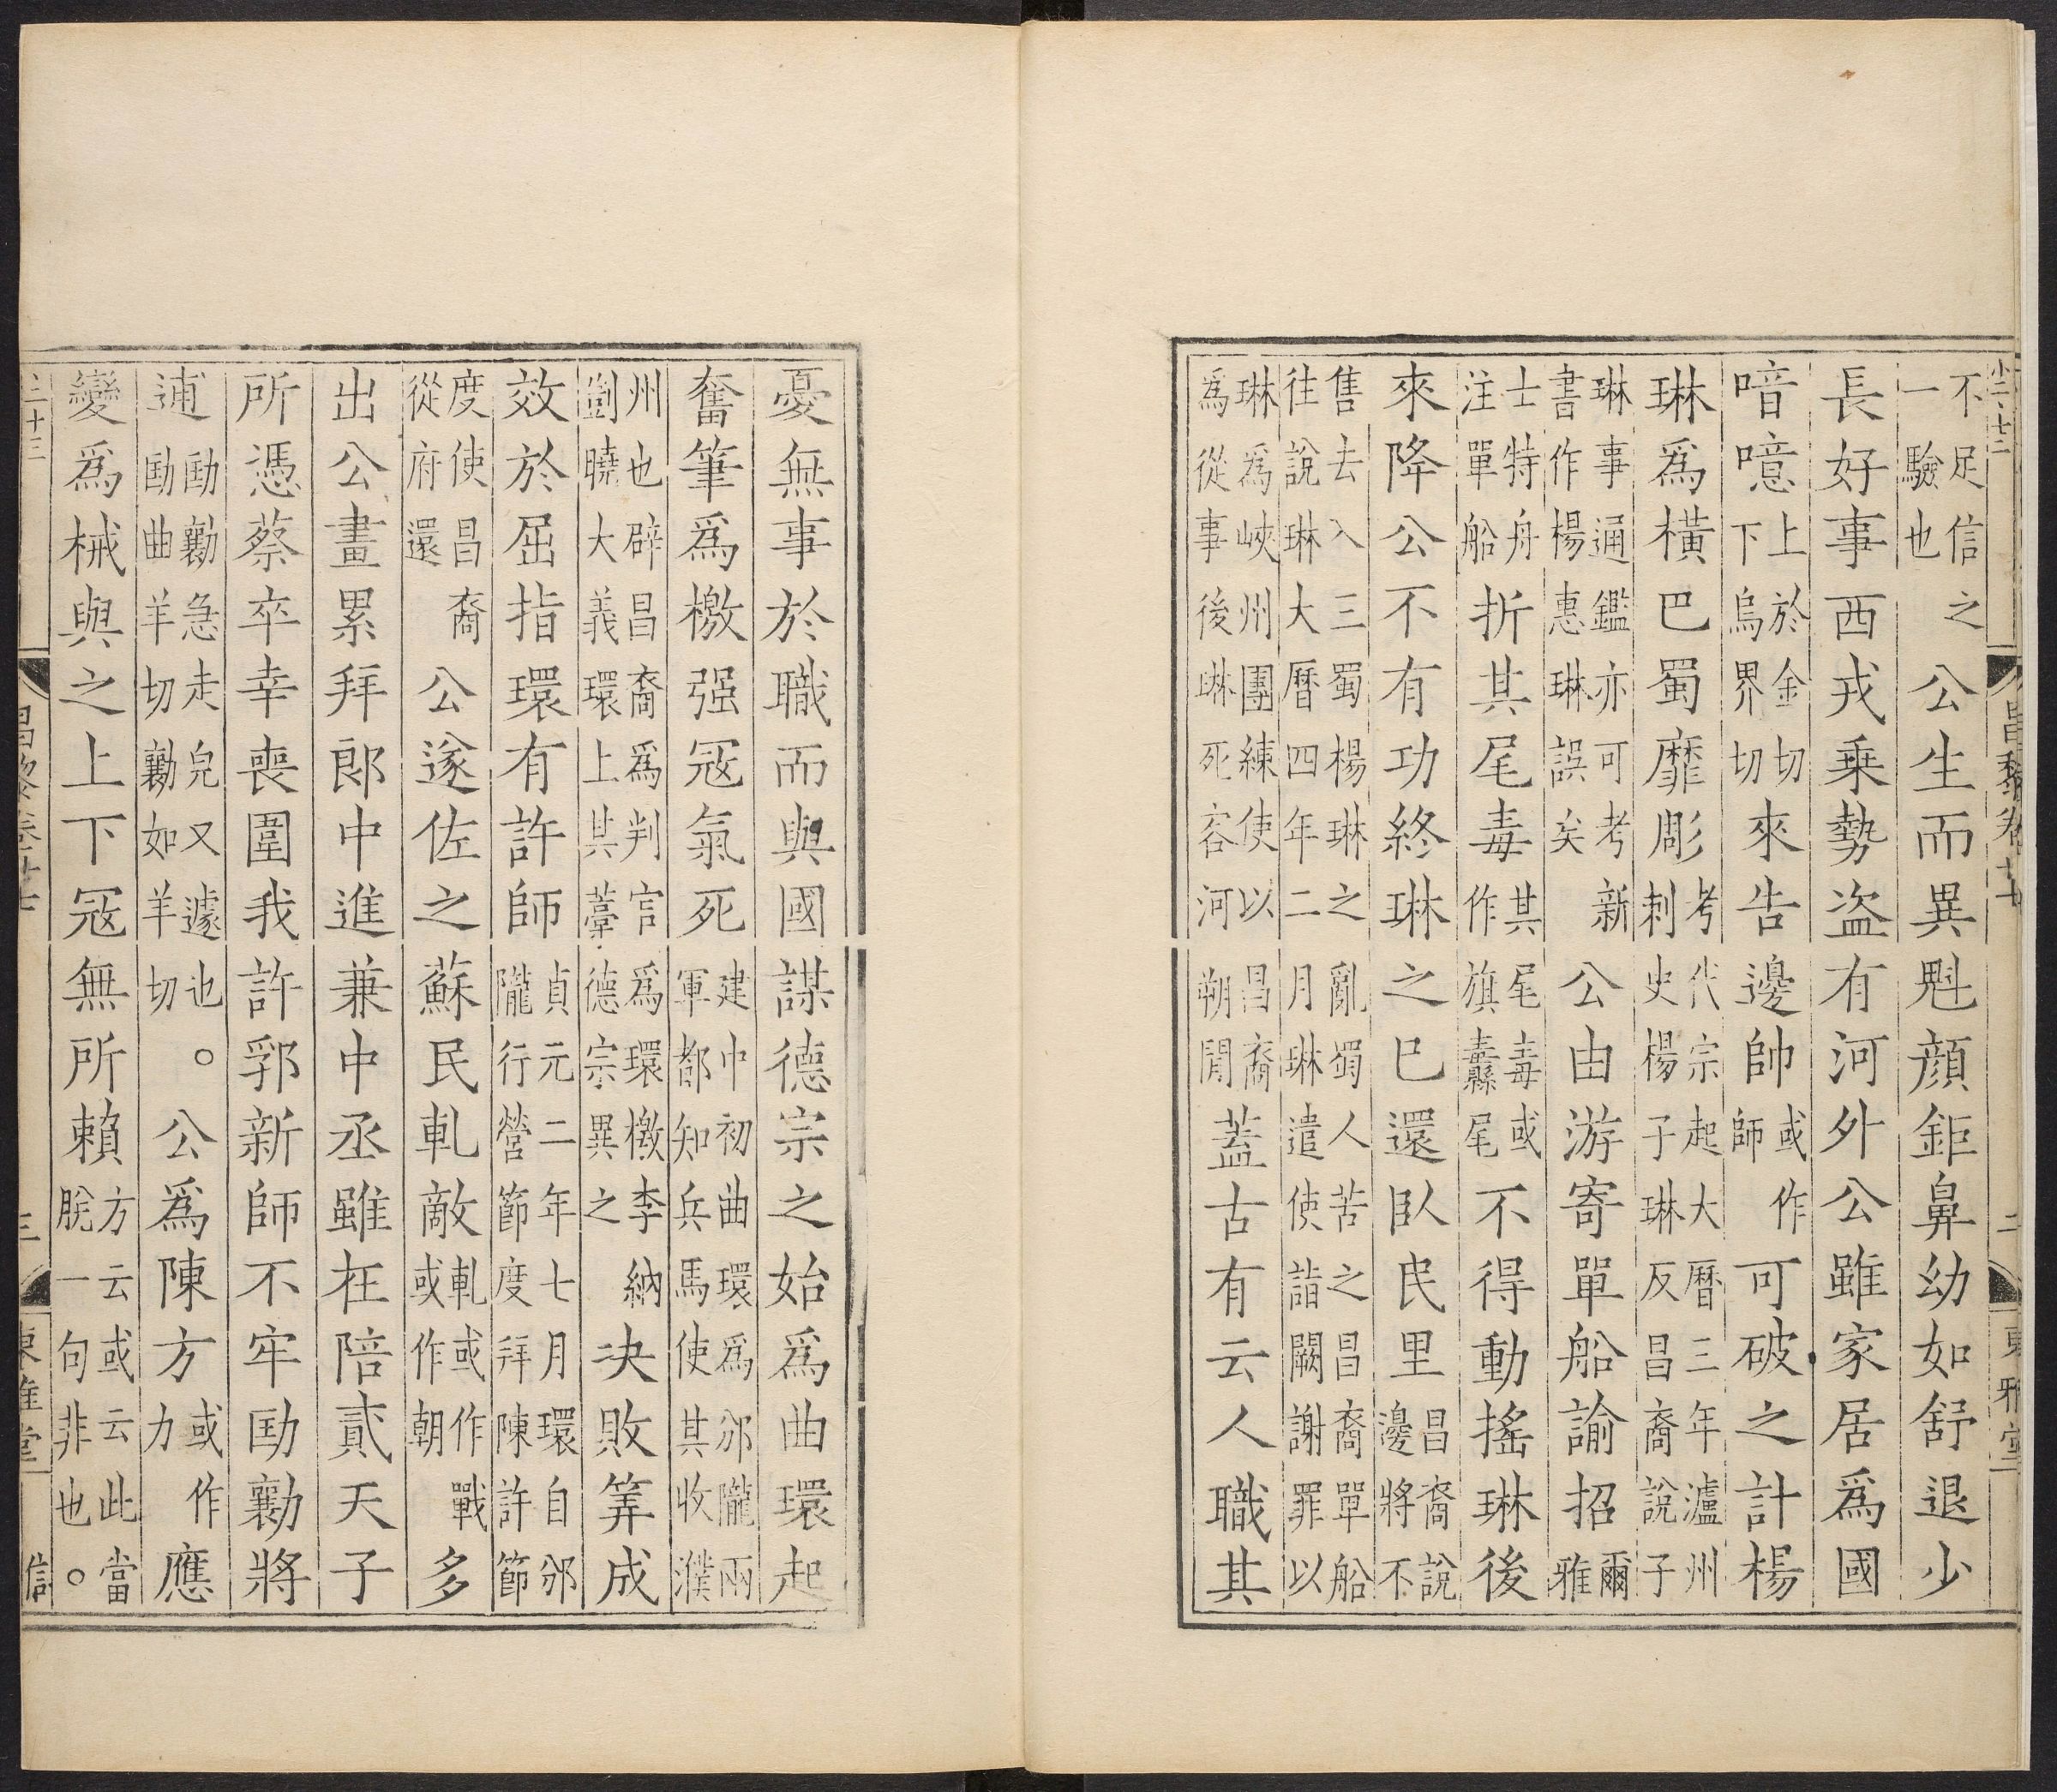 不足信之一驗也公生而異魁顔鉅鼻幼如舒退少
長好事西戎乗勢盗有河外公雖家居爲國
喑噫上於金切下烏界切來告邊帥或作師可破之計楊
琳爲橫巴蜀靡彫考刺代宗起大曆三年瀘州史楊子琳反昌裔說子
琳事通鑑亦可考新書作楊惠琳誤矣公由游寄單船諭招爾雅
士特舟注單船折其尾毒其作尾毒或旗纛縣尾不得動搖琳後
來降公不有功終琳之巳還臥民里昌裔說邊將不
售去入三蜀楊琳之亂蜀人苦之昌裔單船往說琳大曆四年二月琳遣使詣闕謝罪以
琳爲峽州團練使以昌裔爲從事後琳死客河朔閒蓋古有云人職其
憂無事於職而與國謀德宗之始爲曲環起
奮筆爲檄强冦氣死建中初曲環爲邠隴兩軍都知兵馬使其收濮
州也辟昌裔爲判官爲環檄李納剴曉大義環上其藁德宗異之决敗筭成
效於屈指環有許師貞元二年七月環自邠隴行營節度拜陳許節
度使昌裔從府還公遂佐之蘇民軋敵軋或作戰或作朝多
出公畫累拜郎中進兼中丞雖在陪貳天子
所憑蔡卒幸喪圍我許郛新師不牢劻勷將
逋劻勷急走皃又遽也劻曲羊切勷如羊切。公爲陳方或作力應
變爲械與之上下冦無所賴方云或云此當脫一句非也。
昌黎卷廿七
二
東雅堂
三
東雅堂
信